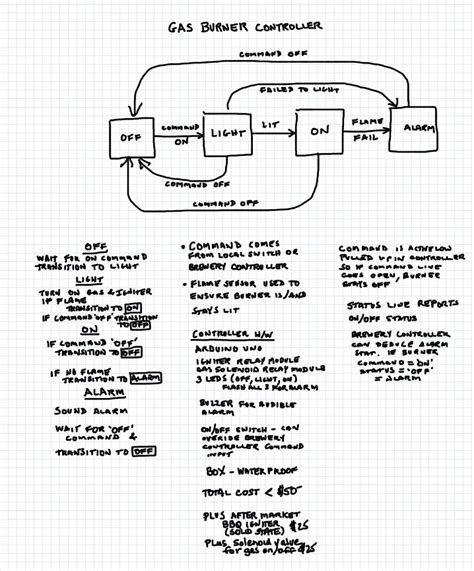 GAS BURNER CONTROLLER
COMMAND OFF
FAILED TO LIGHT
OFF
COMMAND
ON
LIGHT
LIT
ON
FLAME
FAIL
ALARM
COMMAND OFF
COMMAND OFF
OFF
WAIT FOR ON COMMAND
TRANSITION TO LIGHT
LIGHT
TURN ON GAS & IGNITER
IF FLAME
TRANSITION TO ON
IF COMMAND 'OFF' TRANSITION
TO OFF
ON
IF COMMAND 'OFF'
TRANSITION TO OFF
IF NO FLAME
TRANSITION TO ALARM
ALARM
SOUND ALARM
WAIT FOR 'OFF'
COMMAND &
TRANSITION TO OFF
• COMMAND COMES
FROM LOCAL SWITCH OR
BREWERY CONTROLLER
• FLAME SENSOR USED TO
ENSURE BURNER IS/AND
STAYS LIT
CONTROLLER H/W
ARDUINO UNO
IGNITER RELAY MODULE
GAS SOLENOID RELAY MODULE
3 LEDS (OFF, LIGHT, ON)
FLASH ALL 3 FOR ALARM
BUZZER FOR AUDIBLE
ALARM
ON/OFF SWITCH - CAN
OVERIDE BREWERY
CONTROLLER COMMAND
INPUT
BOX - WATERPROOF
TOTAL COST < $50
PLUS AFTER MARKET
BBQ IGNITER $25
(SOLID STATE)
Plus Solenoid valve
for gas on/off $25
COMMAND IS ACTIVE LOW
PULLED UP IN CONTROLLER
SO IF COMMAND LINE
GOES OPEN, BURNER
STAYS OFF
STATUS LINE REPORTS
ON/OFF STATUS
BREWERY CONTROLLER
CAN DEDUCE ALARM
STAT. IF BURNER
COMMAND = 'ON'
STATUS = 'OFF'
= ALARM